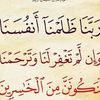 رَبَّنَا ظَلَمْنَا أَنفُسَنَا
وَإِن لَّمْ تَغْفِرْ لَنَا وَتَرْحَمْنَا
لَنَكُونَنَّ مِنَ الْخَاسِرِينَ